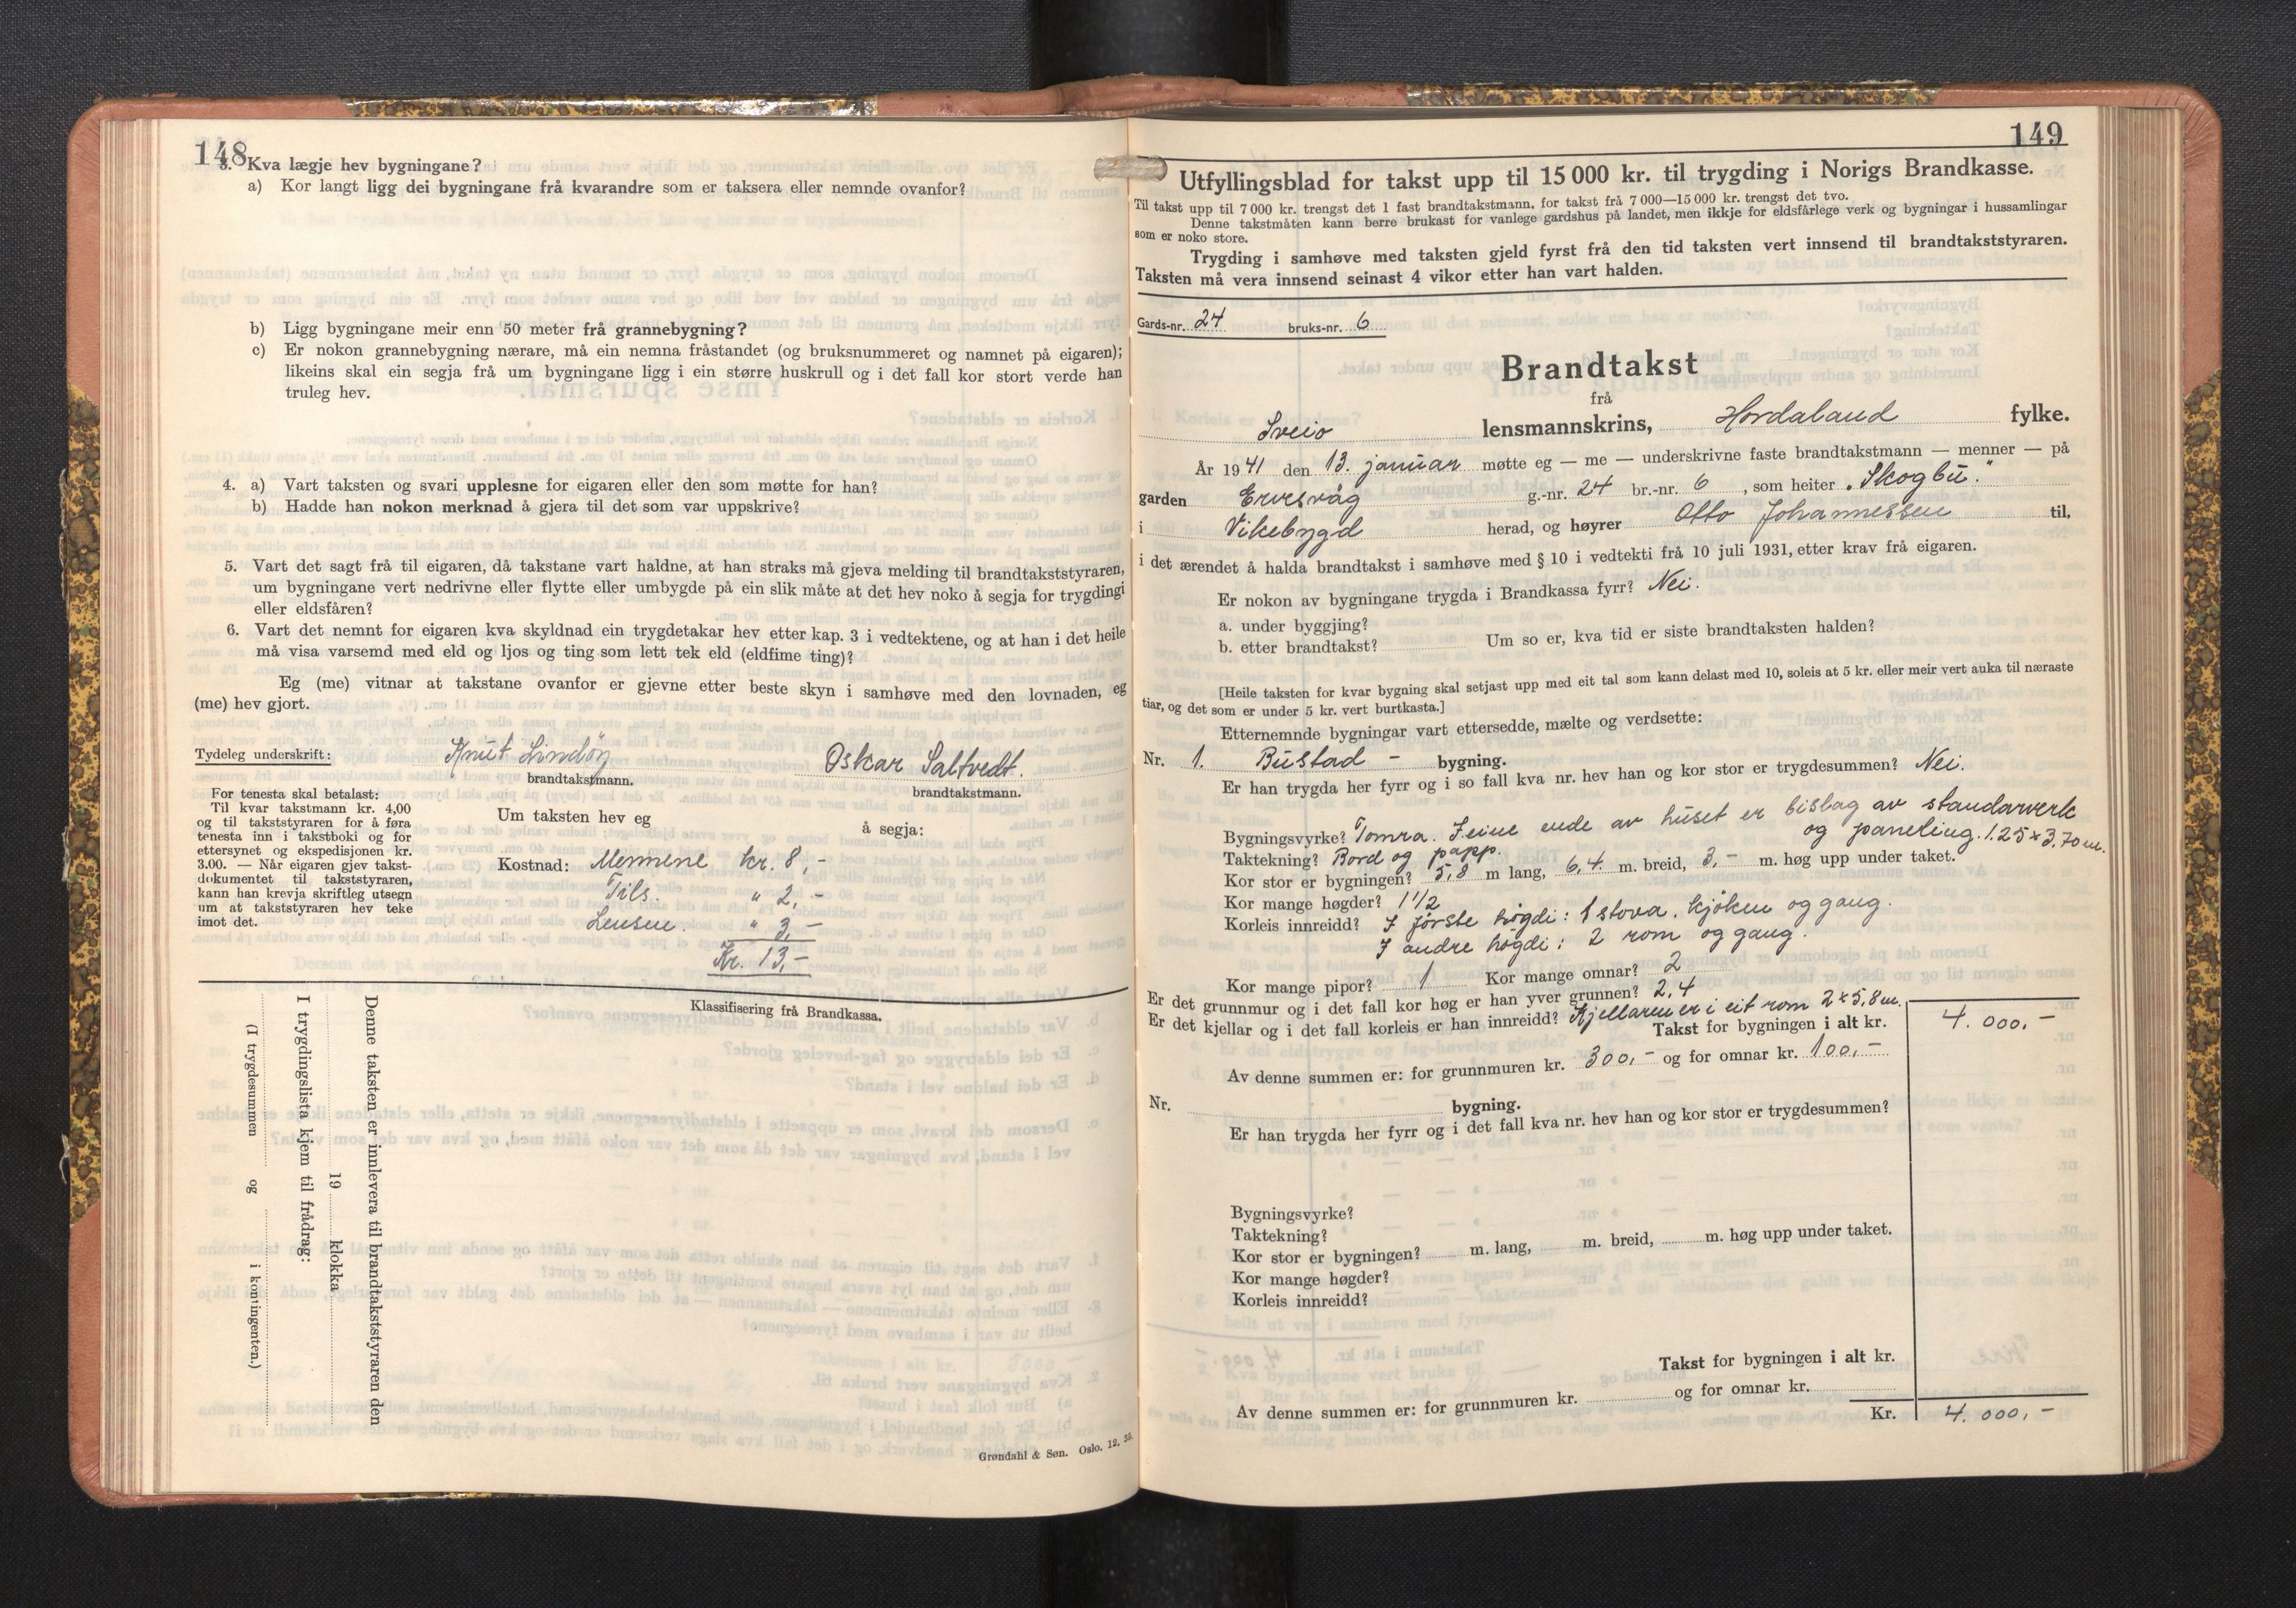 148
3. Kva lægje hev bygningane?
a) Kor langt ligg dei bygningane frå kvarandre som er taksera eller nemnde ovanfor?
b) Ligg bygningane meir enn 50 meter frå grannebygning?
c) Er nokon grannebygning nærare, må ein nemna fråstandet (og bruksnummeret og namnet på eigaren);
likeins skal ein segja frå um bygningane ligg i ein større huskrull og i det fall kor stort verde han
truleg hev.
4. a) Vart taksten og svari upplesne for eigaren eller den som møtte for han?
b) Hadde han nokon merknad å gjera til det som var uppskrive?
5. Vart det sagt frå til eigaren, då takstane vart haldne, at han straks må gjeva melding til brandtakststyraren,
um bygningane vert nedrivne eller flytte eller umbygde på ein slik måte at det hev noko å segja for trygdingi
eller eldsfåren?
6. Vart det nemnt for eigaren kva skyldnad ein trygdetakar hev etter kap. 3 i vedtektene, og at han i det heile
må visa varsemd med eld og ljos og ting som lett tek eld (eldfime ting)?
Eg (me) vitnar at takstane ovanfor er gjevne etter beste skyn i samhøve med den lovnaden, eg
(me) hev gjort.
Tydeleg underskrift: Knut Lindøy Oskar Saltvedt.
brandtakstmann. brandtakstmann.
For tenesta skal betalast:
Til kvar takstmann kr. 4,00
og til takststyraren for å føra
tenesta inn i takstboki og for
ettersynet og ekspedisjonen kr.
3.00. — Når eigaren gjev takst-
dokumentet til takststyraren,
kann han krevja skriftleg utsegn
um at takststyraren hev teke
imot det.
Um taksten hev eg å segja:
Kostnad: Mennene kr. 8,-
Tils. " 2,-
Lensm. " 3,-
Kr. 13,-
Klassifisering frå Brandkassa.
Denne taksten er innlevera til brandtakststyraren den
19 klokka
I trygdingslista kjem til frådrag:
(I trygdesummen og i kontingenten.)
Grøndahl & Søn. Oslo. 12. 39.
149
Utfyllingsblad for takst upp til 15 000 kr. til trygding i Norigs Brandkasse.
Til takst upp til 7 000 kr. trengst det 1 fast brandtakstmann, for takst frå 7 000—15 000 kr. trengst det tvo.
Denne takstmåten kann berre brukast for vanlege gardshus på landet, men ikkje for eldsfårlege verk og bygningar i hussamlingar
som er noko store.
Trygding i samhøve med taksten gjeld fyrst frå den tid taksten vert innsend til brandtakststyraren.
Taksten må vera innsend seinast 4 vikor etter han vart halden.
Gards-nr. 24 bruks-nr. 6
Brandtakst
frå
Sveio lensmannskrins, Hordaland fylke.
År 1941 den 13. januar møtte eg — me — underskrivne faste brandtakstmann — menner — på
garden Ervesvåg g.-nr. 24 br.-nr. 6, som heiter "Skogbu".
i Vikebygd herad, og høyrer Otto Johannessen til,
i det ærendet å halda brandtakst i samhøve med § 10 i vedtekti frå 10 juli 1931, etter krav frå eigaren.
Er nokon av bygningane trygda i Brandkassa fyrr? Nei.
a. under byggjing?
b. etter brandtakst? Um so er, kva tid er siste brandtaksten halden?
[Heile taksten for kvar bygning skal setjast upp med eit tal som kann delast med 10, soleis at 5 kr. eller meir vert auka til næraste
tiar, og det som er under 5 kr. vert burtkasta.]
Etternemnde bygningar vart ettersedde, mælte og verdsette:
Nr. 1. Bustad - bygning.
Er han trygda her fyrr og i so fall kva nr. hev han og kor stor er trygdesummen? Nei.
Bygningsvyrke? Tomra. I eine ende av huset er bislag av standarverk
og paneling. 1.25 x 3.70 m.
Taktekning? Bord og papp.
Kor stor er bygningen? 5,8 m lang, 6,4 m. breid, 3,- m. høg upp under taket.
Kor mange høgder? 1 1/2
Korleis innreidd? I første høgdi: 1 stova, kjøken og gang.
I andre høgdi: 2 rom og gang.
Kor mange pipor? 1 Kor mange omnar? 2
Er det grunnmur og i det fall kor høg er han yver grunnen? 2,4
Er det kjellar og i det fall korleis er han innreidd? Kjellaren er i eit rom 2 x 5,8 m.
Takst for bygningen i alt kr. 4.000,-
Av denne summen er: for grunnmuren kr. 300,- og for omnar kr. 100,-
Nr. bygning.
Er han trygda her fyrr og i det fall kva nr. hev han og kor stor er trygdesummen?
Bygningsvyrke?
Taktekning?
Kor stor er bygningen? m. lang, m. breid, m. høg upp under taket.
Kor mange høgder?
Korleis innreidd?
Takst for bygningen i alt kr.
Av denne summen er: for grunnmuren kr. og for omnar kr.
Kr. 4.000,-